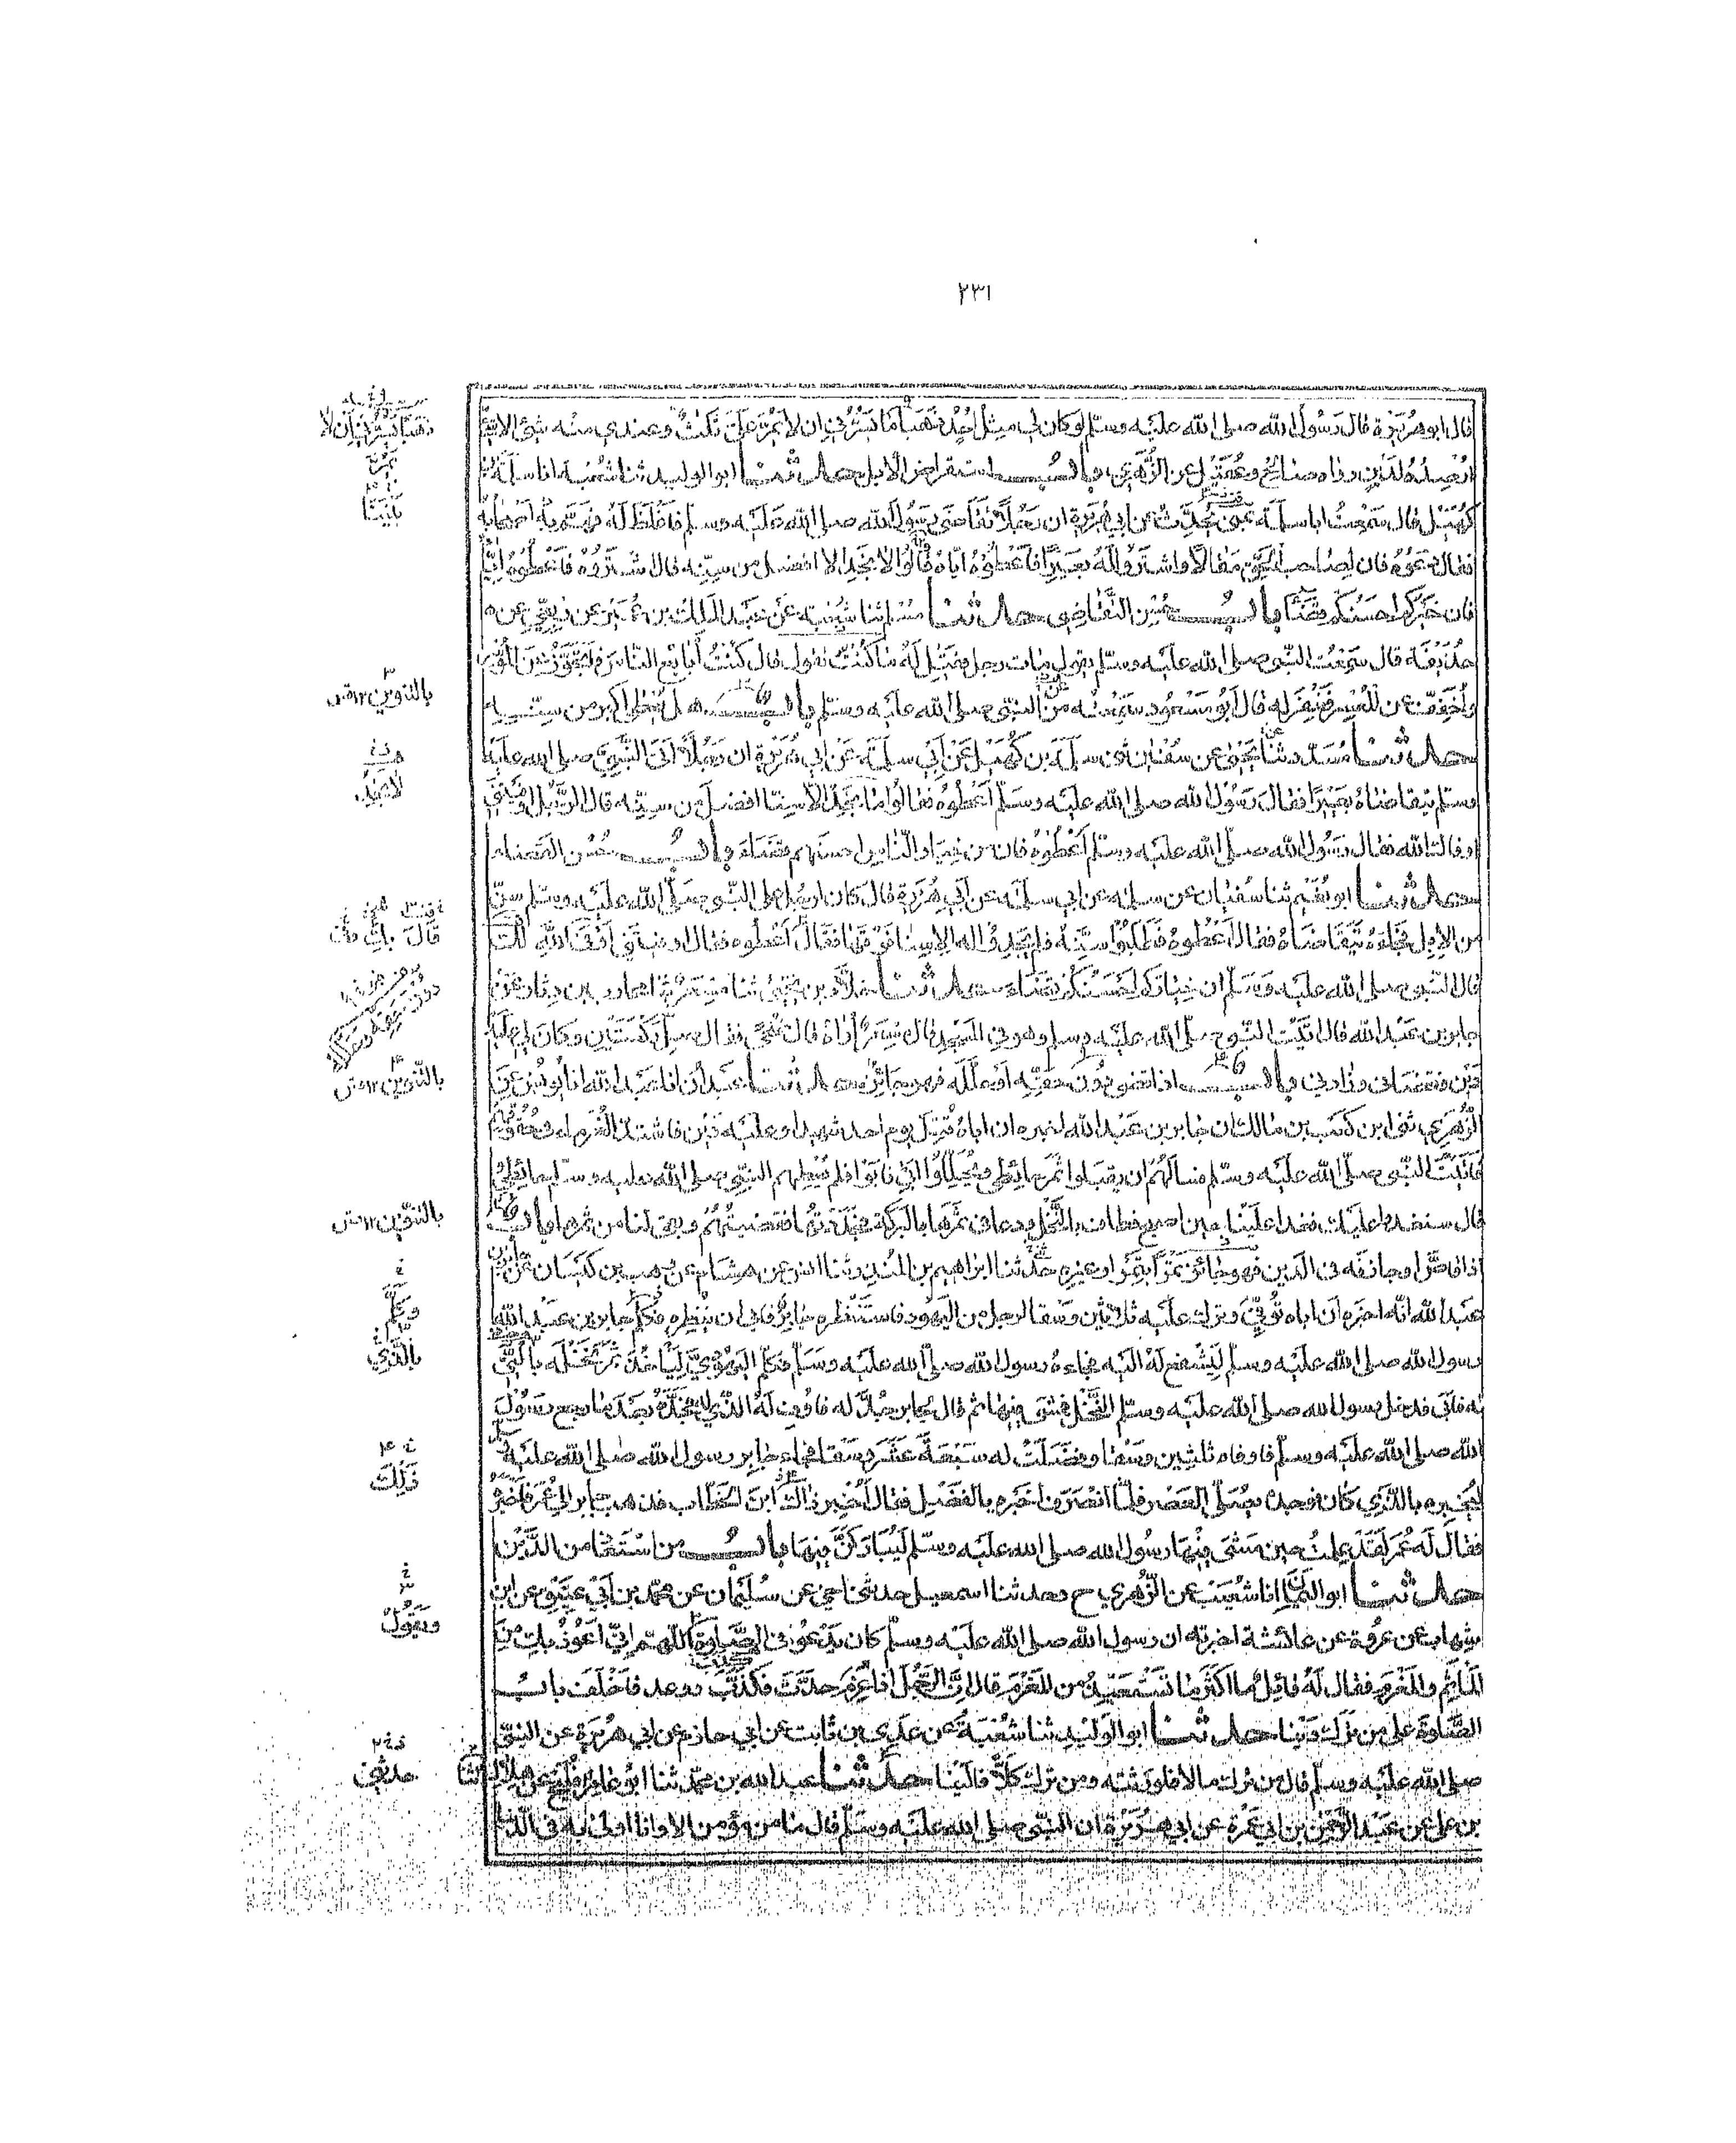 ٢٣١
قال ابو هريرة قال رسول الله صلى الله عليه وسلم لو كان لي مثل احد ذهبا ما يسرني ان لا يمر علي ثلث وعندي منه شيئ الا شيئ
ارصده لدين رواه صالح وعقيل عن الزهري باب استقراض الابل حدثنا ابو الوليد ثنا شعبة انا سلمة بن
كهيل قال سمعت ابا سلمة بمنى يحدث عن ابي هريرة ان رجلا تقاضى رسول الله صلى الله عليه وسلم فاغلظ له فهم به اصحابه
فقال دعوه فان لصاحب الحق مقالا واشتروا له بعيرا فاعطوه اياه قالوا لا نجد الا افضل من سنه قال اشتروه فاعطوه اياه
فان خيركم احسنكم قضاء باب حسن التقاضي حدثنا مسلم ثنا شعبة عن عبد الملك بن عمير عن ربعي عن
حذيفة قال سمعت النبي صلى الله عليه وسلم يقول مات رجل فقيل له ما كنت تقول قال كنت ابايع الناس فاتجوز عن الموسر
واخفف عن المعسر فغفر له قال ابو مسعود سمعته من النبي صلى الله عليه وسلم باب هل يعطى اكبر من سنه
حدثنا مسدد ثنا يحيى عن سفيان ثني سلمة بن كهيل عن ابي سلمة عن ابي هريرة ان رجلا اتى النبي صلى الله عليه
وسلم يتقاضاه بعيرا فقال رسول الله صلى الله عليه وسلم اعطوه فقالوا ما نجد الا سنا افضل من سنه قال الرجل اوفيتني
اوفاك الله فقال رسول الله صلى الله عليه وسلم اعطوه فان من خيار الناس احسنهم قضاء باب حسن القضاء
حدثنا ابو نعيم ثنا سفيان عن سلمة عن ابي سلمة عن ابي هريرة قال كان لرجل على النبي صلى الله عليه وسلم سن
من الابل فجاءه يتقاضاه فقال اعطوه فطلبوا سنه فلم يجدوا له الا سنا فوقها فقال اعطوه فقال اوفيتني اوفى الله لك
قال النبي صلى الله عليه وسلم ان خياركم احسنكم قضاء حدثنا خلاد بن يحيى ثنا مسعر ثنا محارب بن دثار عن
جابر بن عبد الله قال اتيت النبي صلى الله عليه وسلم وهو في المسجد قال مسعر اراه قال ضحى فقال صل ركعتين وكان لي عليه
دين فقضاني وزادني باب اذا قضى دون حقه او حلله فهو جائز حدثنا عبدان انا عبد الله انا يونس عن
الزهري ثني ابن كعب بن مالك ان جابر بن عبد الله اخبره ان اباه قتل يوم احد شهيدا وعليه دين فاشتد الغرماء في حقوقهم
فاتيت النبي صلى الله عليه وسلم فسالهم ان يقبلوا ثمر حائطي ويحللوا ابي فابوا فلم يعطهم النبي صلى الله عليه وسلم حائطي
قال سنغدوا عليك فغدا علينا حين اصبح فطاف بالنخل ودعا في ثمرها بالبركة فجددتها فقضيتهم وبقي لنا من ثمرها باب
اذا قاص او جازفه في الدين فهو جائز تمرا بتمر او غيره حدثنا ابراهيم بن المنذر ثنا انس عن هشام عن وهب بن كيسان عن جابر بن
عبد الله انه اخبره ان اباه توفي وترك عليه ثلاثين وسقا لرجل من اليهود فاستنظره جابر فابى ان ينظره فكلم جابر بن عبد الله
رسول الله صلى الله عليه وسلم ليشفع له اليه فجاءه رسول الله صلى الله عليه وسلم فكلم اليهودي لياخذ ثمر نخله بالتي
له فابى فدخل رسول الله صلى الله عليه وسلم النخل فمشى فيها ثم قال لجابر جد له فاوف له الذي له فجده بعد ما رجع رسول
الله صلى الله عليه وسلم فاوفاه ثلثين وسقا وفضلت له سبعة عشر وسقا فجاء جابر رسول الله صلى الله عليه وسلم
ليخبره بالذي كان فوجده يصلي العصر فلما انصرف اخبره بالفضل فقال اخبر ذلك ابن الخطاب فذهب جابر الى عمر فاخبره
فقال له عمر لقد علمت حين مشى فيها رسول الله صلى الله عليه وسلم ليباركن فيها باب من استعاذ من الدين
حدثنا ابو اليمان انا شعيب عن الزهري ح وحدثنا اسمعيل حدثني اخي عن سليمان عن محمد بن ابي عتيق عن ابن
شهاب عن عروة عن عائشة اخبرته ان رسول الله صلى الله عليه وسلم كان يدعو في الصلوة اللهم اني اعوذ بك من
الماثم والمغرم فقال له قائل ما اكثر ما تستعيذ من المغرم قال ان الرجل اذا غرم حدث فكذب ووعد فاخلف باب
الصلوة على من ترك دينا حدثنا ابو الوليد ثنا شعبة عن عدي بن ثابت عن ابي حازم عن ابي هريرة عن النبي
صلى الله عليه وسلم قال من ترك مالا فلورثته ومن ترك كلا فالينا حدثنا عبد الله بن محمد ثنا ابو عامر ثنا فليح عن هلال
بن علي عن عبد الرحمن بن ابي عمرة عن ابي هريرة ان النبي صلى الله عليه وسلم قال ما من مؤمن الا وانا اولى به في الدنيا
بالتنوين
لا نجد
قال
بالتنوين
بالتنوين
وكلم
بالذي
ذلك
ويقول
حدثني